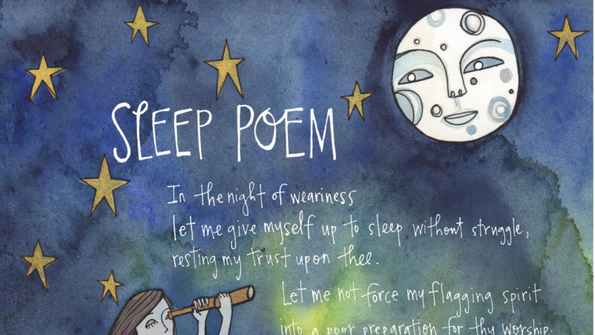 SLEEP POEM
In the night of weariness
let me give myself up to sleep without struggle,
resting my trust upon thee.
Let me not force my flagging spirit
into a poor preparation for thy worship.